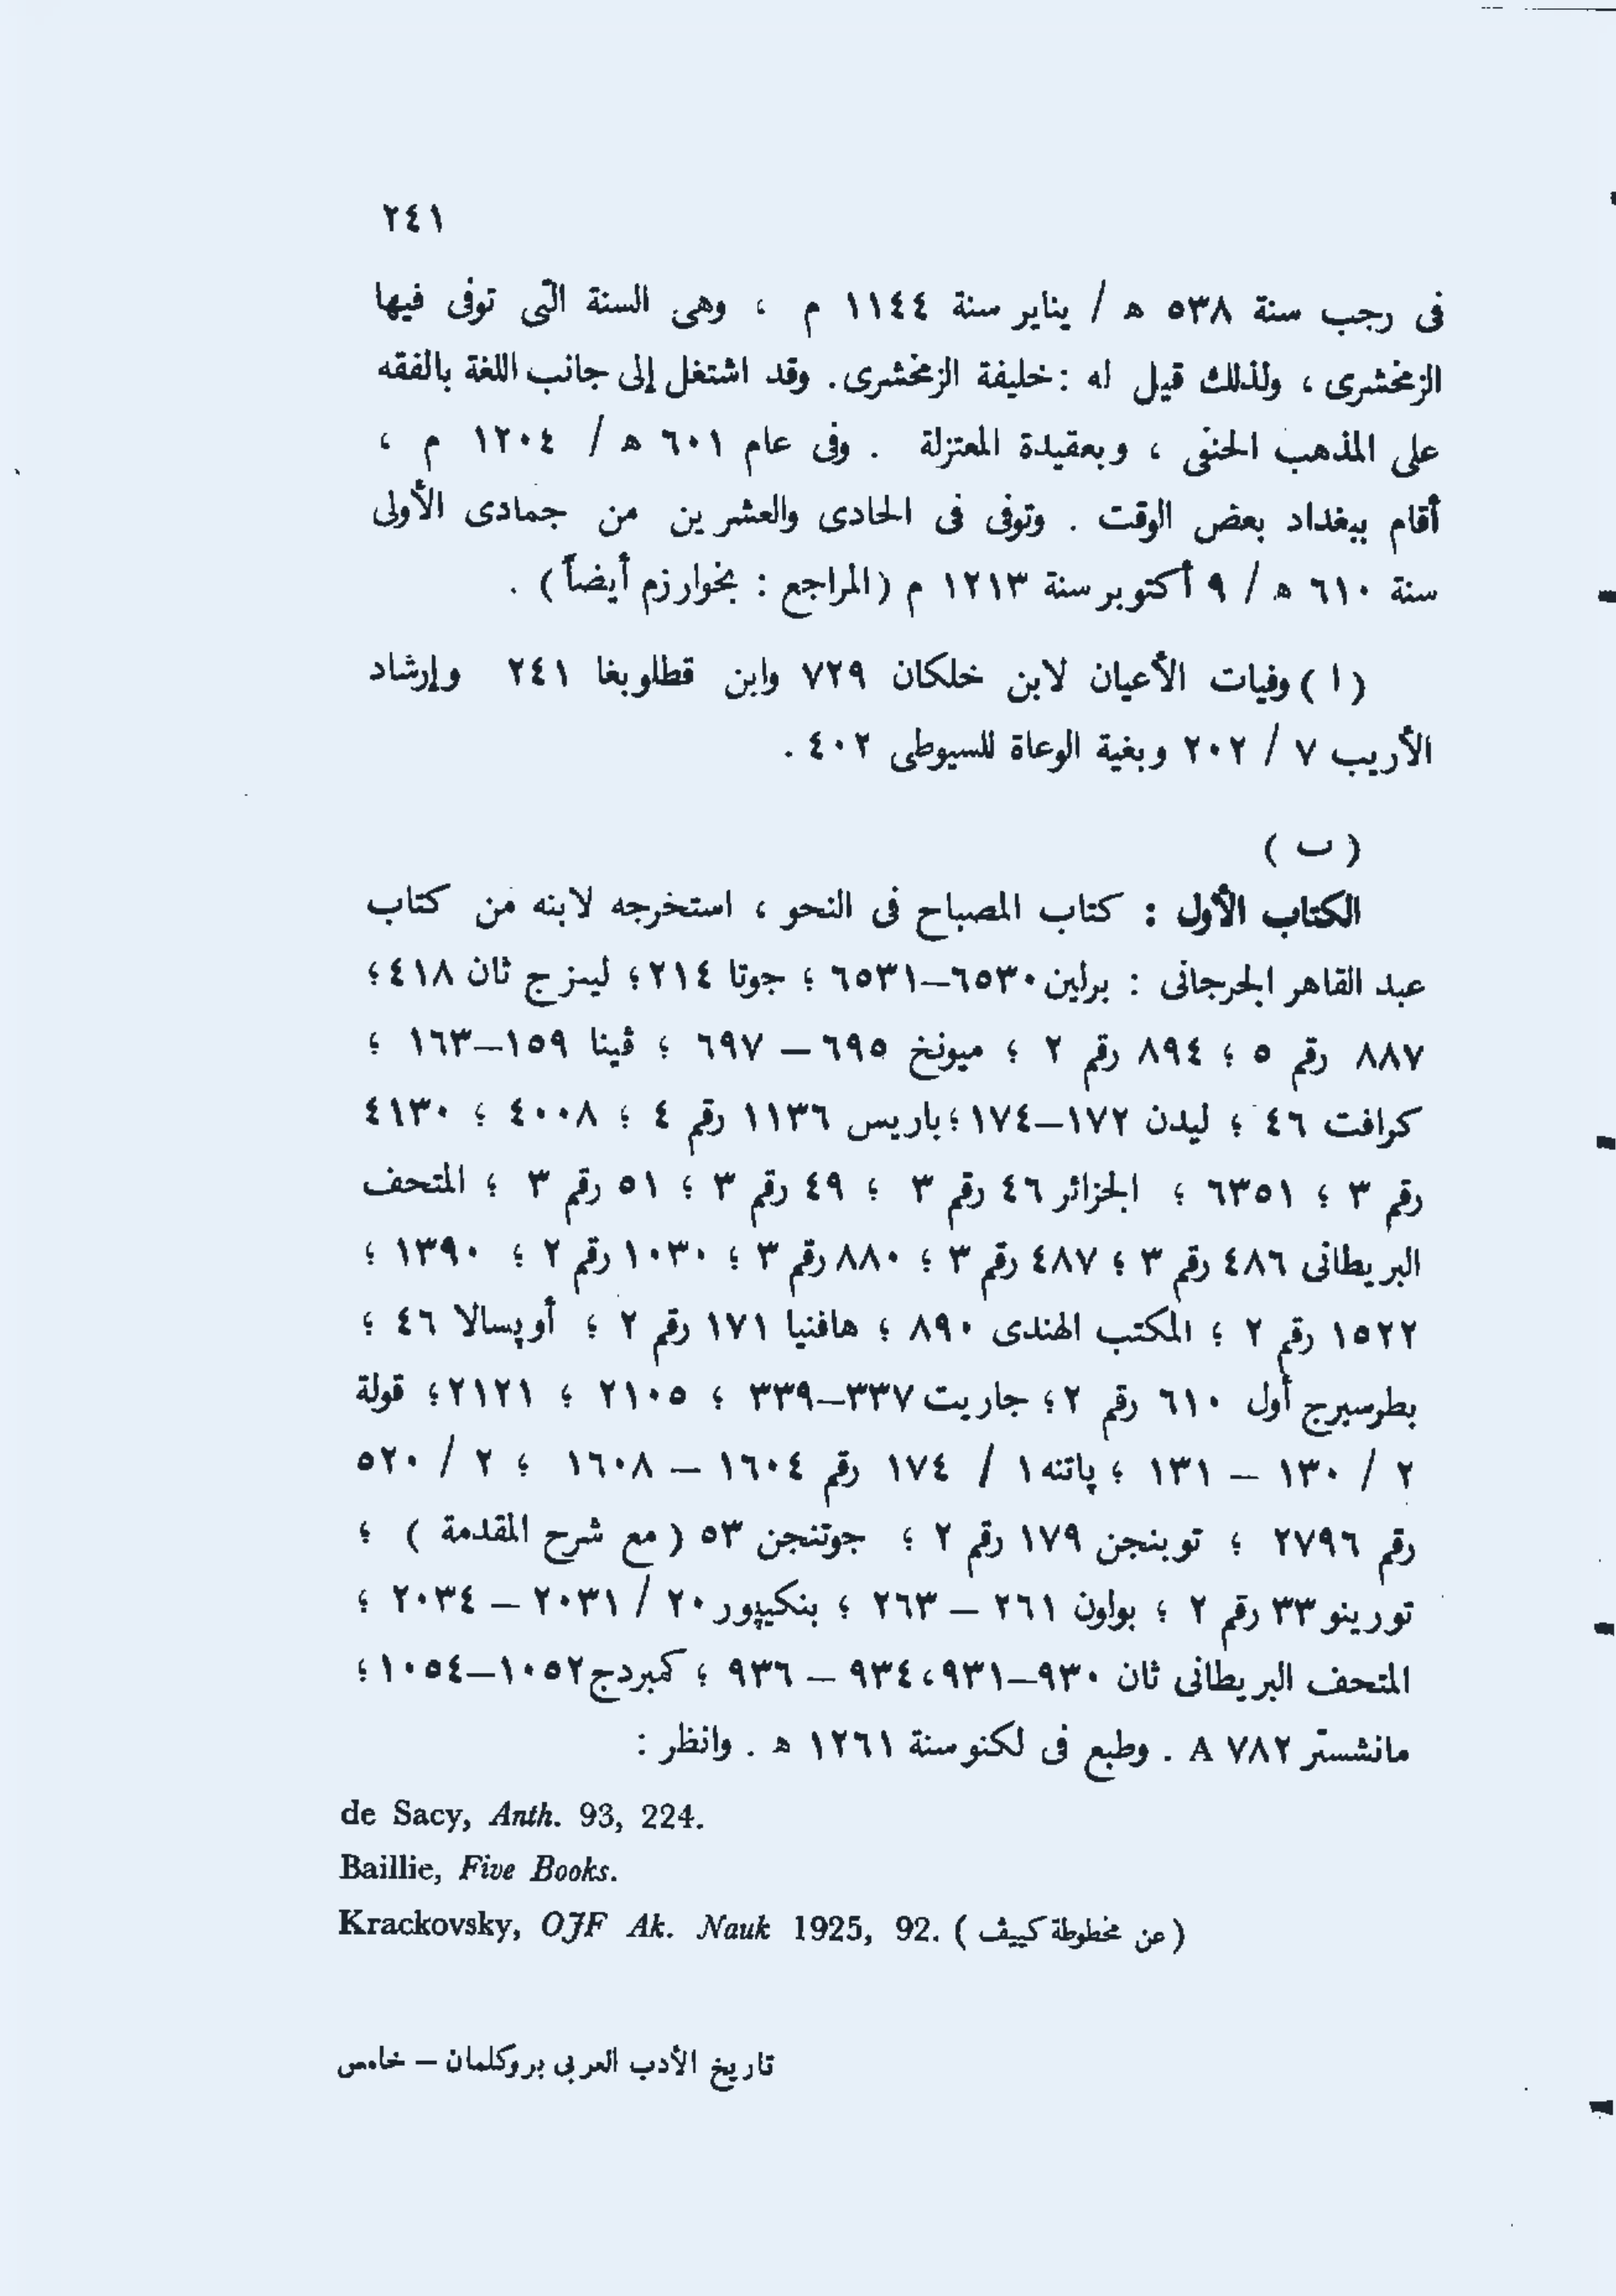 ٢٤١
فى رجب سنة ٥٣٨ ه / يناير سنة ١١٤٤ م ، وهى السنة التى توفى فيها
الزمخشرى ، ولذلك قيل له : خليفة الزمخشرى . وقد اشتغل إلى جانب اللغة بالفقه
على المذهب الحنفى ، وبعقيدة المعتزلة . وفى عام ٦٠١ ه / ١٢٠٤ م ،
أقام ببغداد بعض الوقت . وتوفى فى الحادى والعشرين من جمادى الأولى
سنة ٦١٠ ه / ٩ أكتوبر سنة ١٢١٣ م (المراجع : بخوارزم أيضاً) .
( ا ) وفيات الأعيان لابن خلكان ٧٢٩ وابن قطلوبغا ٢٤١ وإرشاد
الأريب ٧ / ٢٠٢ وبغية الوعاة للسيوطى ٤٠٢ .
( ب )
الكتاب الأول : كتاب المصباح فى النحو ، استخرجه لابنه من كتاب
عبد القاهر الجرجانى : برلين ٦٥٣٠–٦٥٣١ ؛ جوتا ٢١٤ ؛ ليبزج ثان ٤١٨ ؛
٨٨٧ رقم ٥ ؛ ٨٩٤ رقم ٢ ؛ ميونخ ٦٩٥ – ٦٩٧ ؛ ڤينا ١٥٩–١٦٣ ؛
كرافت ٤٦ ؛ ليدن ١٧٢–١٧٤ ؛ باريس ١١٣٦ رقم ٤ ؛ ٤٠٠٨ ؛ ٤١٣٠
رقم ٣ ؛ ٦٣٥١ ؛ الجزائر ٤٦ رقم ٣ ؛ ٤٩ رقم ٣ ؛ ٥١ رقم ٣ ؛ المتحف
البريطانى ٤٨٦ رقم ٣ ؛ ٤٨٧ رقم ٣ ؛ ٨٨٠ رقم ٣ ؛ ١٠٣٠ رقم ٢ ؛ ١٣٩٠ ؛
١٥٢٢ رقم ٢ ؛ المكتب الهندى ٨٩٠ ؛ هافنيا ١٧١ رقم ٢ ؛ أوپسالا ٤٦ ؛
بطرسبرج أول ٦١٠ رقم ٢ ؛ جاريت ٣٣٧–٣٣٩ ؛ ٢١٠٥ ؛ ٢١٢١ ؛ قولة
٢ / ١٣٠ – ١٣١ ؛ پاتنه ١ / ١٧٤ رقم ١٦٠٤ – ١٦٠٨ ؛ ٢ / ٥٢٠
رقم ٢٧٩٦ ؛ توبنجن ١٧٩ رقم ٢ ؛ جوتنجن ٥٣ ( مع شرح المقدمة ) ؛
تورينو ٣٣ رقم ٢ ؛ بولون ٢٦١ – ٢٦٣ ؛ بنكيپور ٢٠ / ٢٠٣١ – ٢٠٣٤ ؛
المتحف البريطانى ثان ٩٣٠–٩٣١ ، ٩٣٤ – ٩٣٦ ؛ كمبردج ١٠٥٢–١٠٥٤ ؛
مانشستر ٧٨٢ A . وطبع فى لكنو سنة ١٢٦١ ه . وانظر :
de Sacy, Anth. 93, 224.
Baillie, Five Books.
Krackovsky, OJF Ak. Nauk 1925, 92. (عن مخطوطة كييڤ)
تاريخ الأدب العربى بروكلمان – خامس